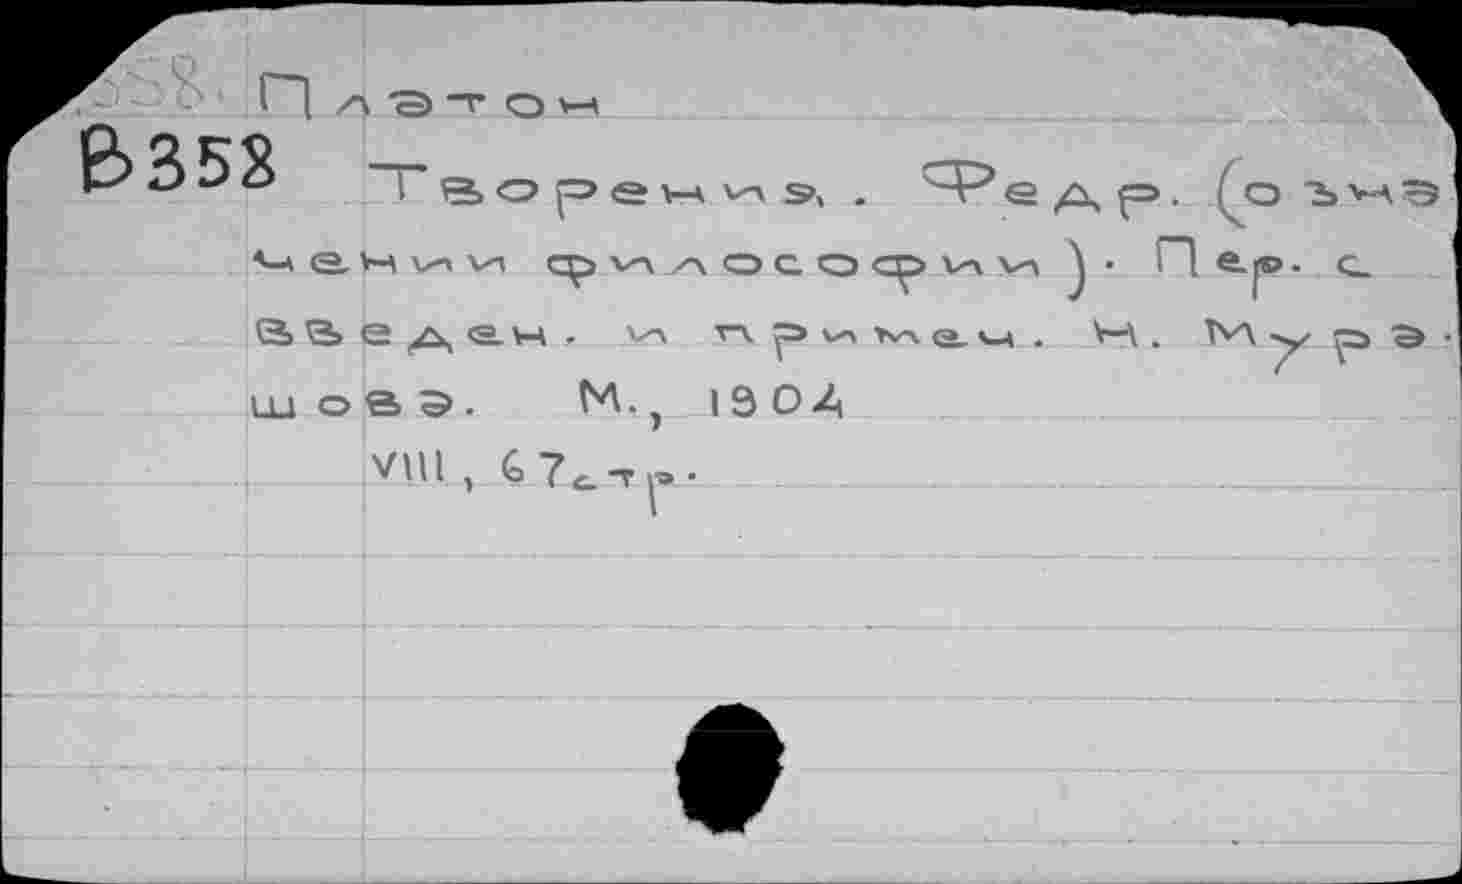 Платон
В358
Творения. Федр. (о ъна
чении философии). Пер. с
введен. и примеч. Н. Мура-
шова. М., 1904
VIII, 67стр.